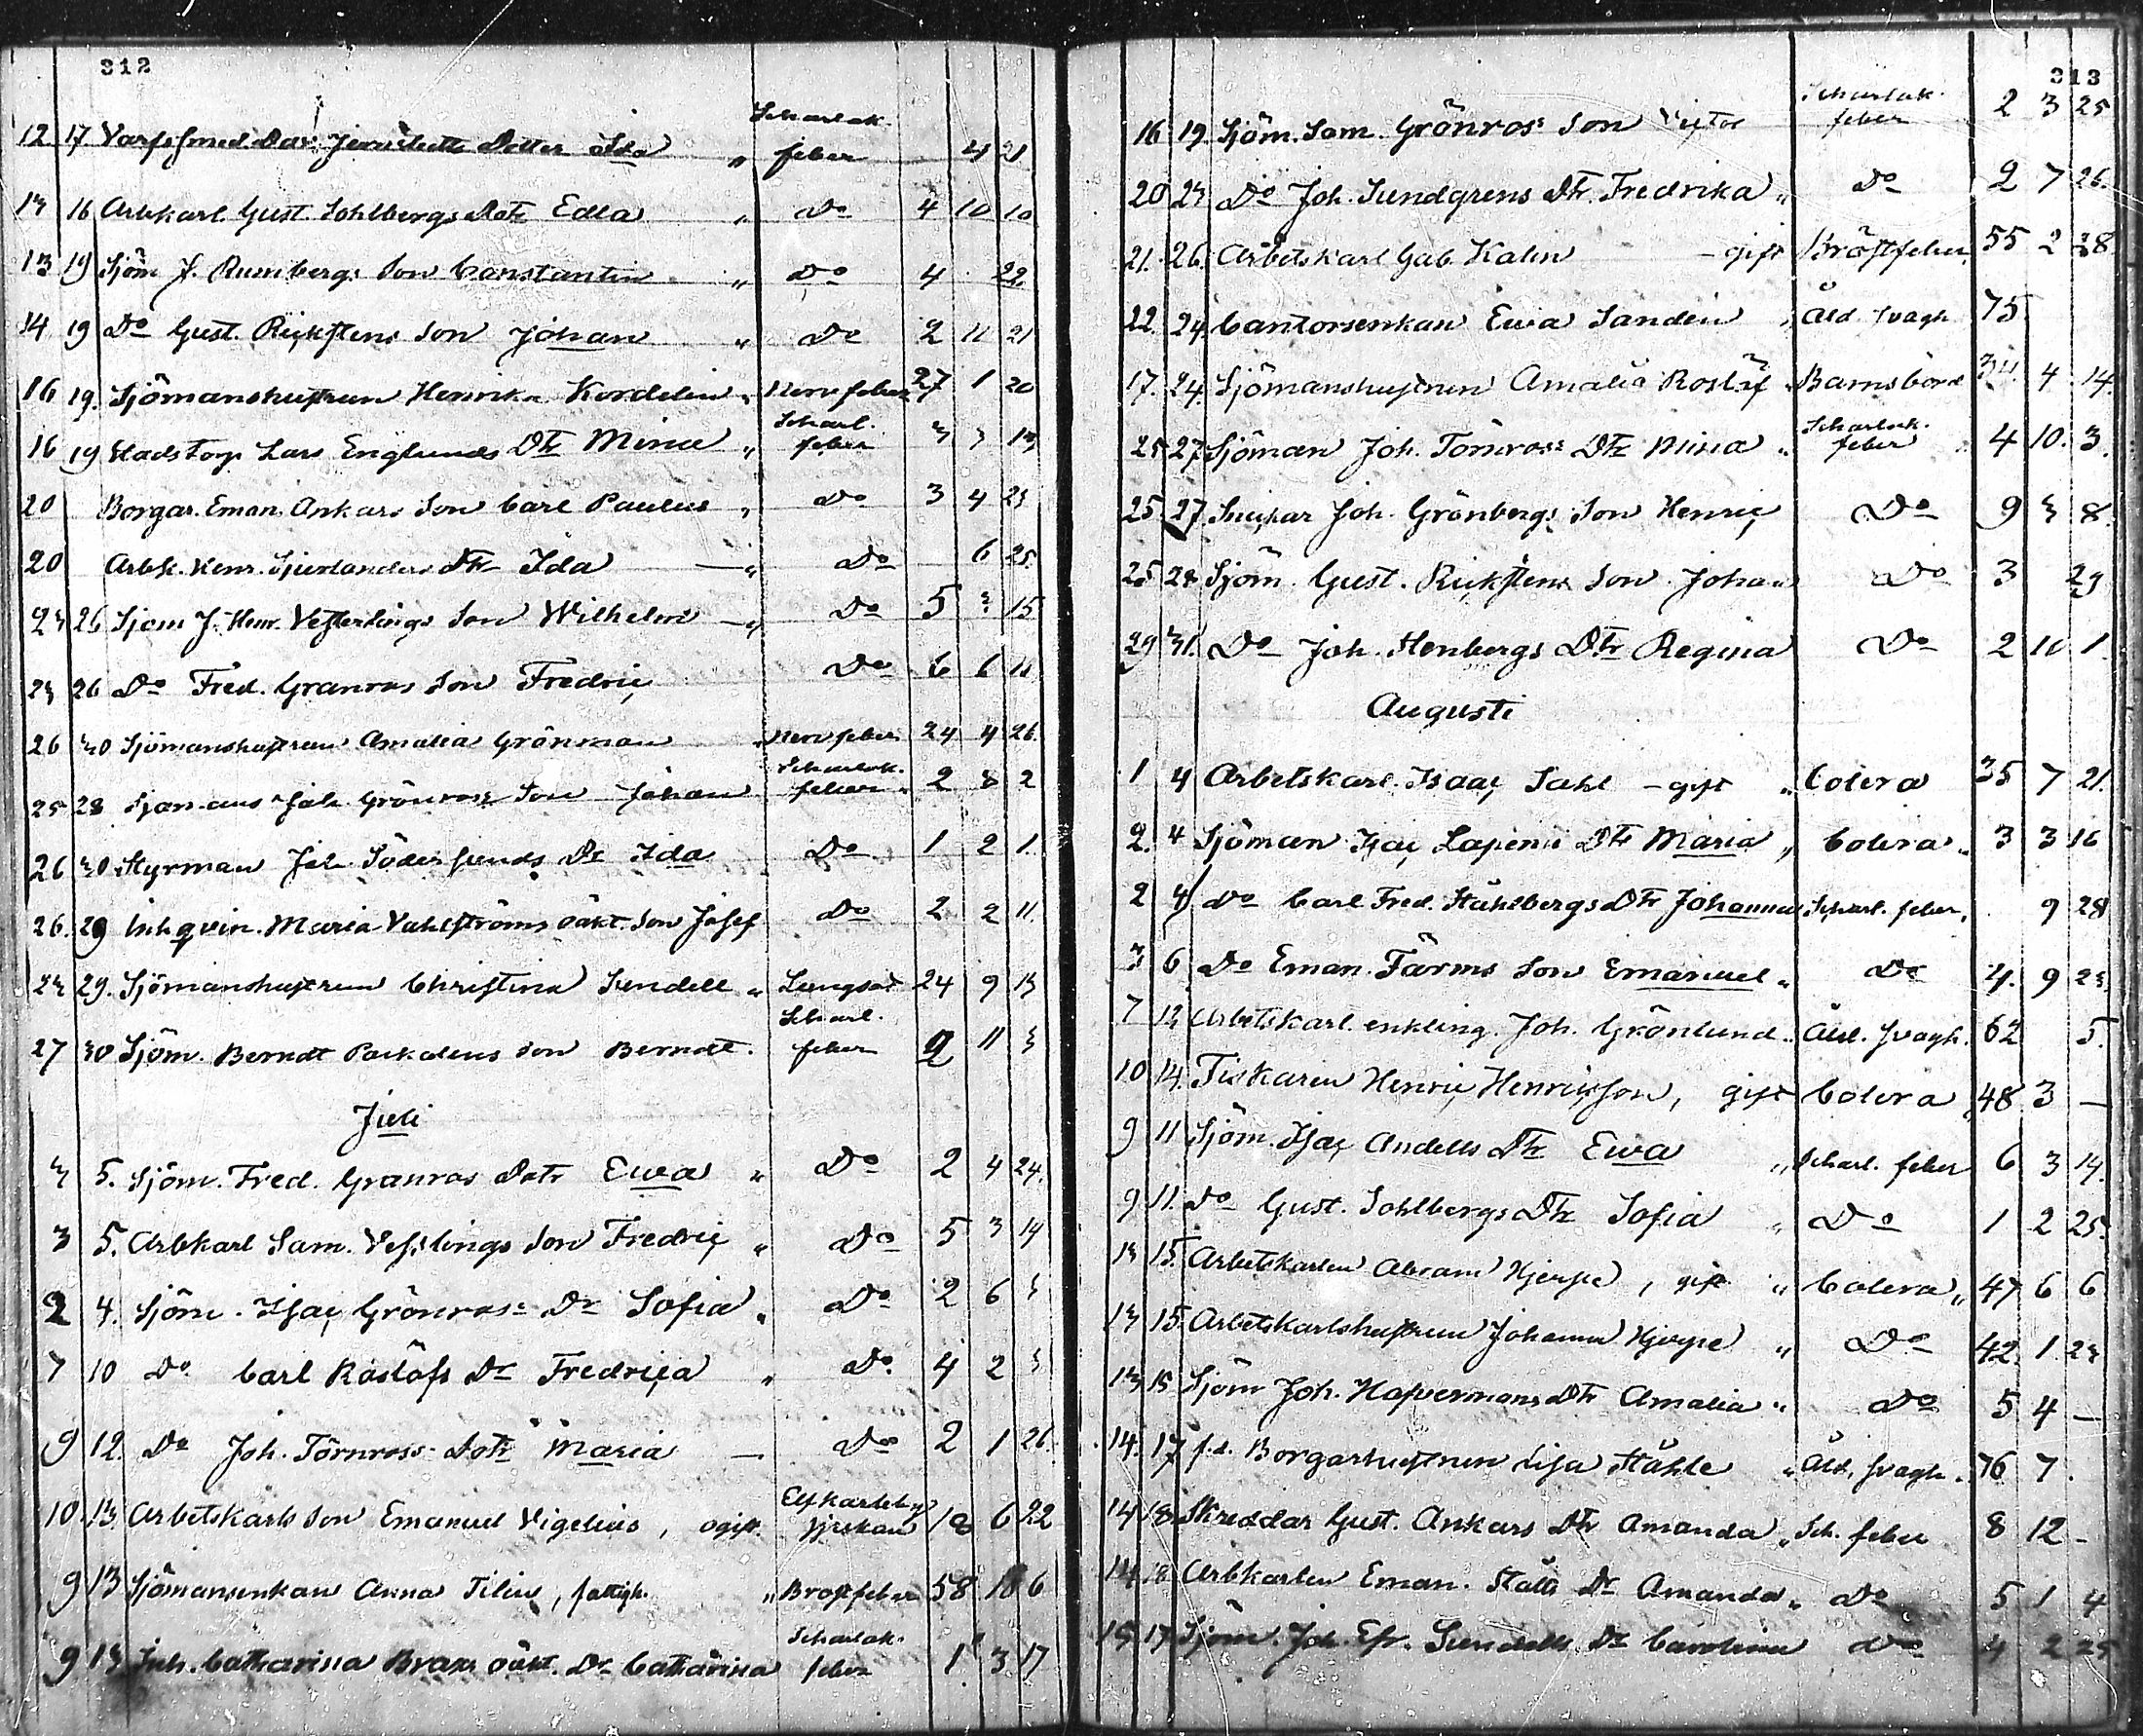 312
12 17 Varfssmed Dav. Dotter Ida " Scharlak. feber 4 21
13 16 Arbkarl Gust. Sohlbergs Dotr Edla " Do 4 10 10
13 19 Sjöm J. Rumbergs Son Constantin " Do 4 22
14 19 Do Gust. Rickstens Son Johan " Do 2 11 21
16 19. Sjömanshustrun Henrika Kordelin " Nervfeber 27 1 20
16 19 Lars Englunds Dtr Mina " Scharl. feber 3 3 13
20 Borgar. Eman. Ankars Son Carl Paulus " Do 3 4 23
20 Arbk. Henr. Dtr Ida " Do 6 25
23 26 Sjöm J. Henr. Vesterlings Son Wilhelm " Do 5 3 15
23 26 Do Fred. Granros Son Fredric Do 6 6 11
26 30 Sjömanshustrun Amalia Grönman " Nervfeber 24 4 26
25 28 Sjömans Joh. Grönros Son Johan Scharlak. feber " 2 8 2
26 30 Styrman Joh. Söderlunds Dr Ida Do 1 2 1
26. 29 Inhqvin. Maria Vahlströms oäkt. Son Josef Do 2 2 11.
23 29. Sjömanshustrun Christina Sundell " Lungsot 24 9 13
27 30 Sjöm. Berndt Packalens Son Berndt. Scharl. feber 2 11 3
Juli
3 5. Sjöm. Fred. Granros Dotr Ewa " Do 2 4 24.
3 5. Arbkarl Sam. Vesslings Son Fredric " Do 5 3 14
2 4. Sjöm. Isac Grönros: Dr Sofia " Do 2 6 3
7 10 Do Carl Roslöfs Dr Fredrica " Do. 4 2 3
9 12. Do Joh. Törnross Dotr Maria — Do 2 1 26
10. 13. Arbetskarls Son Emanuel Vigelius, ogift. Elfkarleby 18 6 22
9 13 Sjömansenkan Anna Tilin, fattigh. " Bröstfeber 58 10 6
9 13 Inh. Catharina Brax oäkt. Dr Catharina Scharlak. feber 1 3 17
313
16 19. Sjöm. Sam. Grönros: Son Victor Scharlak. feber 2 3 25
20 23 Do Joh. Sundgrens Dtr. Fredrika " Do 2 7 26.
21. 26. Arbetskarl Gab. Kalin — gift Bröstfeber 55 2 28
22. 24. Cantorsenkan Ewa Sandén " Åld. svagh 75
17. 24. Sjömanshustrun Amalia Roslöf " Barnsbörd 34 4 14.
25 27 Sjöman Joh. Törnros: Dtr Mina " Scharlak. feber 4 10. 3.
25 27 Snickar Joh. Grönbergs Son Henric Do 9 3 8.
25 28 Sjöm. Gust. Rickstens Son Johan Do 3 29
29 31. Do Joh. Stenbergs Dtr Regina Do 2 10 1.
Augusti
1 4 Arbetskarl. Isaac Sahl — gift " Colera 35 7 21.
2. 4 Sjöman Isac Dtr Maria " Colera " 3 3 16
2 4 Do Carl Fred. Ståhlbergs Dtr Johanna Scharl. feber. 9 28
3 6 Do Eman. Färms Son Emanuel " Do 4. 9 23
7 12 Arbetskarl. enkling. Joh. Grönlund " Åld. svagh. 62 5.
10 14. Fiskaren Henric Henricsson, gift Colera 48 3 —
9 11 Sjöm. Isac Andells Dtr Ewa " Scharl. feber 6 3 14.
9 11. Do Gust. Sohlbergs Dtr Sofia " Do 1 2 25.
13 15. Arbetskarlen Abram Hjerpe, gift " Colera " 47 6 6
13 15. Arbetskarlshustrun Johanna Hjerpe " Do 42 1 23
13 15 Sjöm Joh. Dtr Amalia " Do 5 4 —
14. 17 f.d. Borgarhustrun Lisa Ståhle " Åld. svagh. 76 7.
14 18. Skreddar Gust. Ankars Dtr Amanda " Sch. feber 8 12 -
14 18 Arbkarlen Eman. Dr Amanda " Do 5 1 4
15 17 Sjöm. Joh. Efr. Sundells Dr Carolina Do 4 2 25